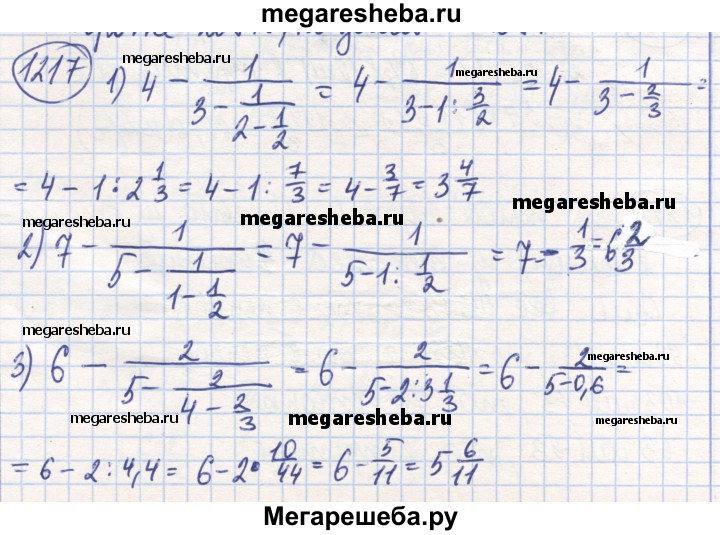 megaresheba.ru
1217 megaresheba.ru megaresheba.ru
1) 4 - 1/(3 - 1/(2 - 1/2)) = 4 - 1/(3 - 1 : 3/2) = 4 - 1/(3 - 2/3) =
= 4 - 1 : 2 1/3 = 4 - 1 : 7/3 = 4 - 3/7 = 3 4/7
megaresheba.ru megaresheba.ru megaresheba.ru
2) 7 - 1/(5 - 1/(1 - 1/2)) = 7 - 1/(5 - 1 : 1/2) = 7 - 1/3 = 6 2/3
megaresheba.ru
3) 6 - 2/(5 - 2/(4 - 2/3)) = 6 - 2/(5 - 2 : 3 1/3) = 6 - 2/(5 - 0,6) =
megaresheba.ru megaresheba.ru megaresheba.ru
megaresheba.ru
= 6 - 2 : 4,4 = 6 - 2 · 10/44 = 6 - 5/11 = 5 6/11
Мегарешеба.ру